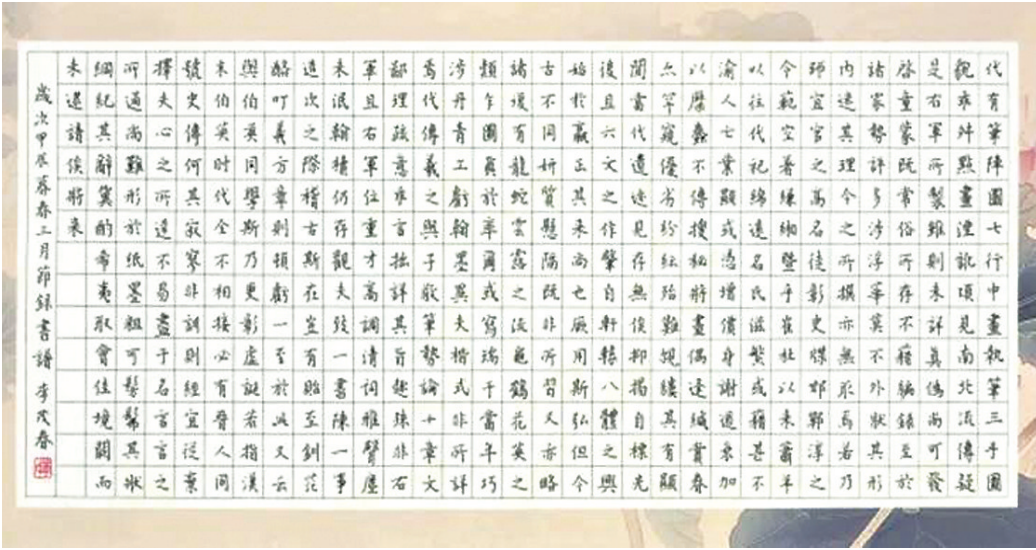 代有筆陣圖七行中畫執筆三手圖
貌乖舛點畫湮訛頃見南北流傳疑
是右軍所製雖則未詳真偽尚可發
啓童蒙既常俗所存不藉編錄至於
諸家勢評多涉浮華莫不外狀其形
内迷其理今之所撰亦無取焉若乃
師宜官之高名徒彰史牒邯鄲淳之
令範空著縑緗暨乎崔杜以來蕭羊
以往代祀綿遠名氏滋繁或藉甚不
渝人亡業顯或憑增價身謝道衰加
以糜蠹不傳搜秘將盡偶逢緘賞旹
亦罕窺優劣紛紜殆難覼縷其有顯
聞當代遺跡見存無俟抑揚自標先
後且六文之作肇自軒轅八體之興
始於嬴正其來尚也厥用斯弘但今
古不同妍質懸隔既非所習又亦略
諸復有龍蛇雲露之流龜鶴花英之
類乍圖真於率爾或寫瑞于當年巧
涉丹青工虧翰墨異夫楷式非所詳
焉代傳羲之與子敬筆勢論十章文
鄙理疏意乖言拙詳其旨趣殊非右
軍且右軍位重才高調清詞雅聲塵
未泯翰牘仍存觀夫致一書陳一事
造次之際稽古斯在豈有貽至訓
義方章則頓虧一至於此又云
與伯英同學斯乃更彰虛誕若指漢
末伯英時代全不相接必有晉人同
號史傳何其寂寥非訓則經宜從棄
擇夫心之所達不易盡于名言言之
所通尚難形於紙墨粗可髣髴其狀
綱紀其辭冀酌希夷取會佳境闕而
未逮請俟將來
歲次甲辰暮春三月節錄書譜李茂春